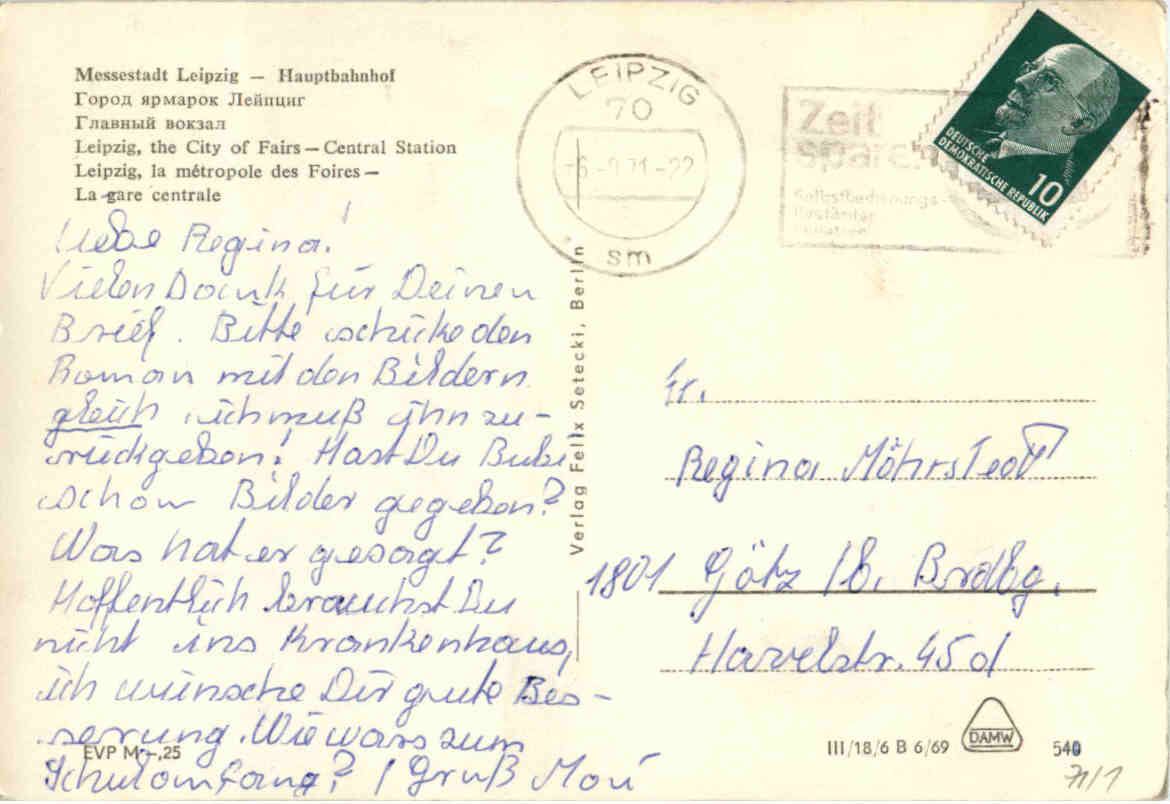 Messestadt Leipzig — Hauptbahnhof
Город ярмарок Лейпциг
Главный вокзал
Leipzig, the City of Fairs — Central Station
Leipzig, la métropole des Foires —
La gare centrale
Liebe Regina!
Vielen Dank für Deinen
Brief. Bitte schicke den
Roman mit den Bildern
gleich, ich muß ihn zu-
rückgeben! Hast Du Bubi
schon Bilder gegeben?
Was hat er gesagt?
Hoffentlich brauchst Du
nicht ins Krankenhaus,
ich wünsche Dir gute Bes-
serung. Wie wars zum
Schulanfang? / Gruß
EVP M –,25
Verlag Felix Setecki, Berlin
LEIPZIG
70
-6.-9.71-22
sm
Zeit
sparen
Selbstbedienungs-
DEUTSCHE
DEMOKRATISCHE REPUBLIK
10
Fr.
Regina Möhrstedt
1801 Götz / b. Brdbg.
Havelstr. 45d
III/18/6 B 6/69
DAMW
540
71/1